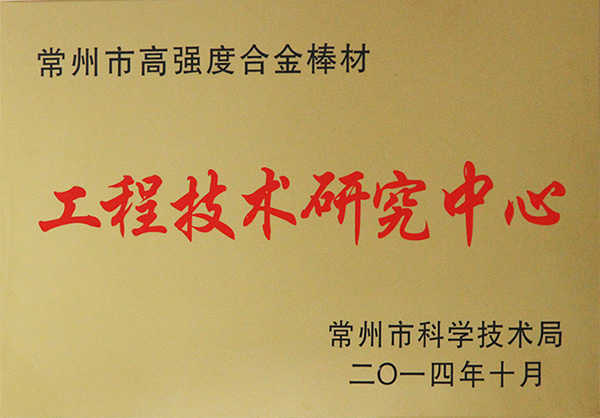 常州市高强度合金棒材
工程技术研究中心
常州市科学技术局
二〇一四年十月